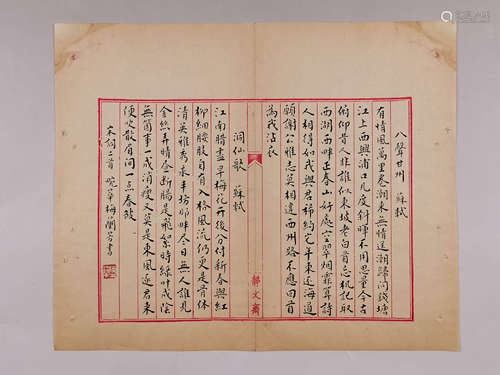 八聲甘州　蘇軾
有情風萬里卷潮來無情送潮歸問錢塘
江上西興浦口几度斜暉不用思量今古
俯仰昔人非誰似東坡老白首忘机記取
西湖西畔正春山好處空翠烟霏算詩
人相得如我與君稀約它年東還海道
願謝公雅志莫相違西州路不應回首
為我沾衣
洞仙歌　蘇軾
江南腊盡早梅花开後分付新春與紅
柳細腰肢自有入格風流仍更是骨体
清英雅秀永丰坊那畔尽日無人誰見
金絲弄晴晝断腸是飛絮時綠叶成陰
無箇事一成消瘦又莫是東風逐君來
便吹散眉間一点春皱
宋詞二首　畹華梅蘭芳書
静文齋